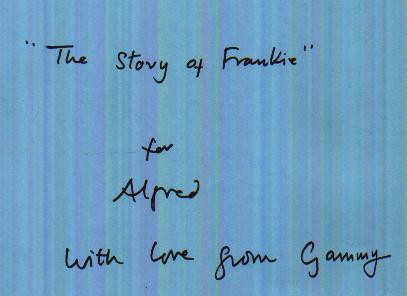 "The Story of Frankie"
for
Alfred
with love from Gammy